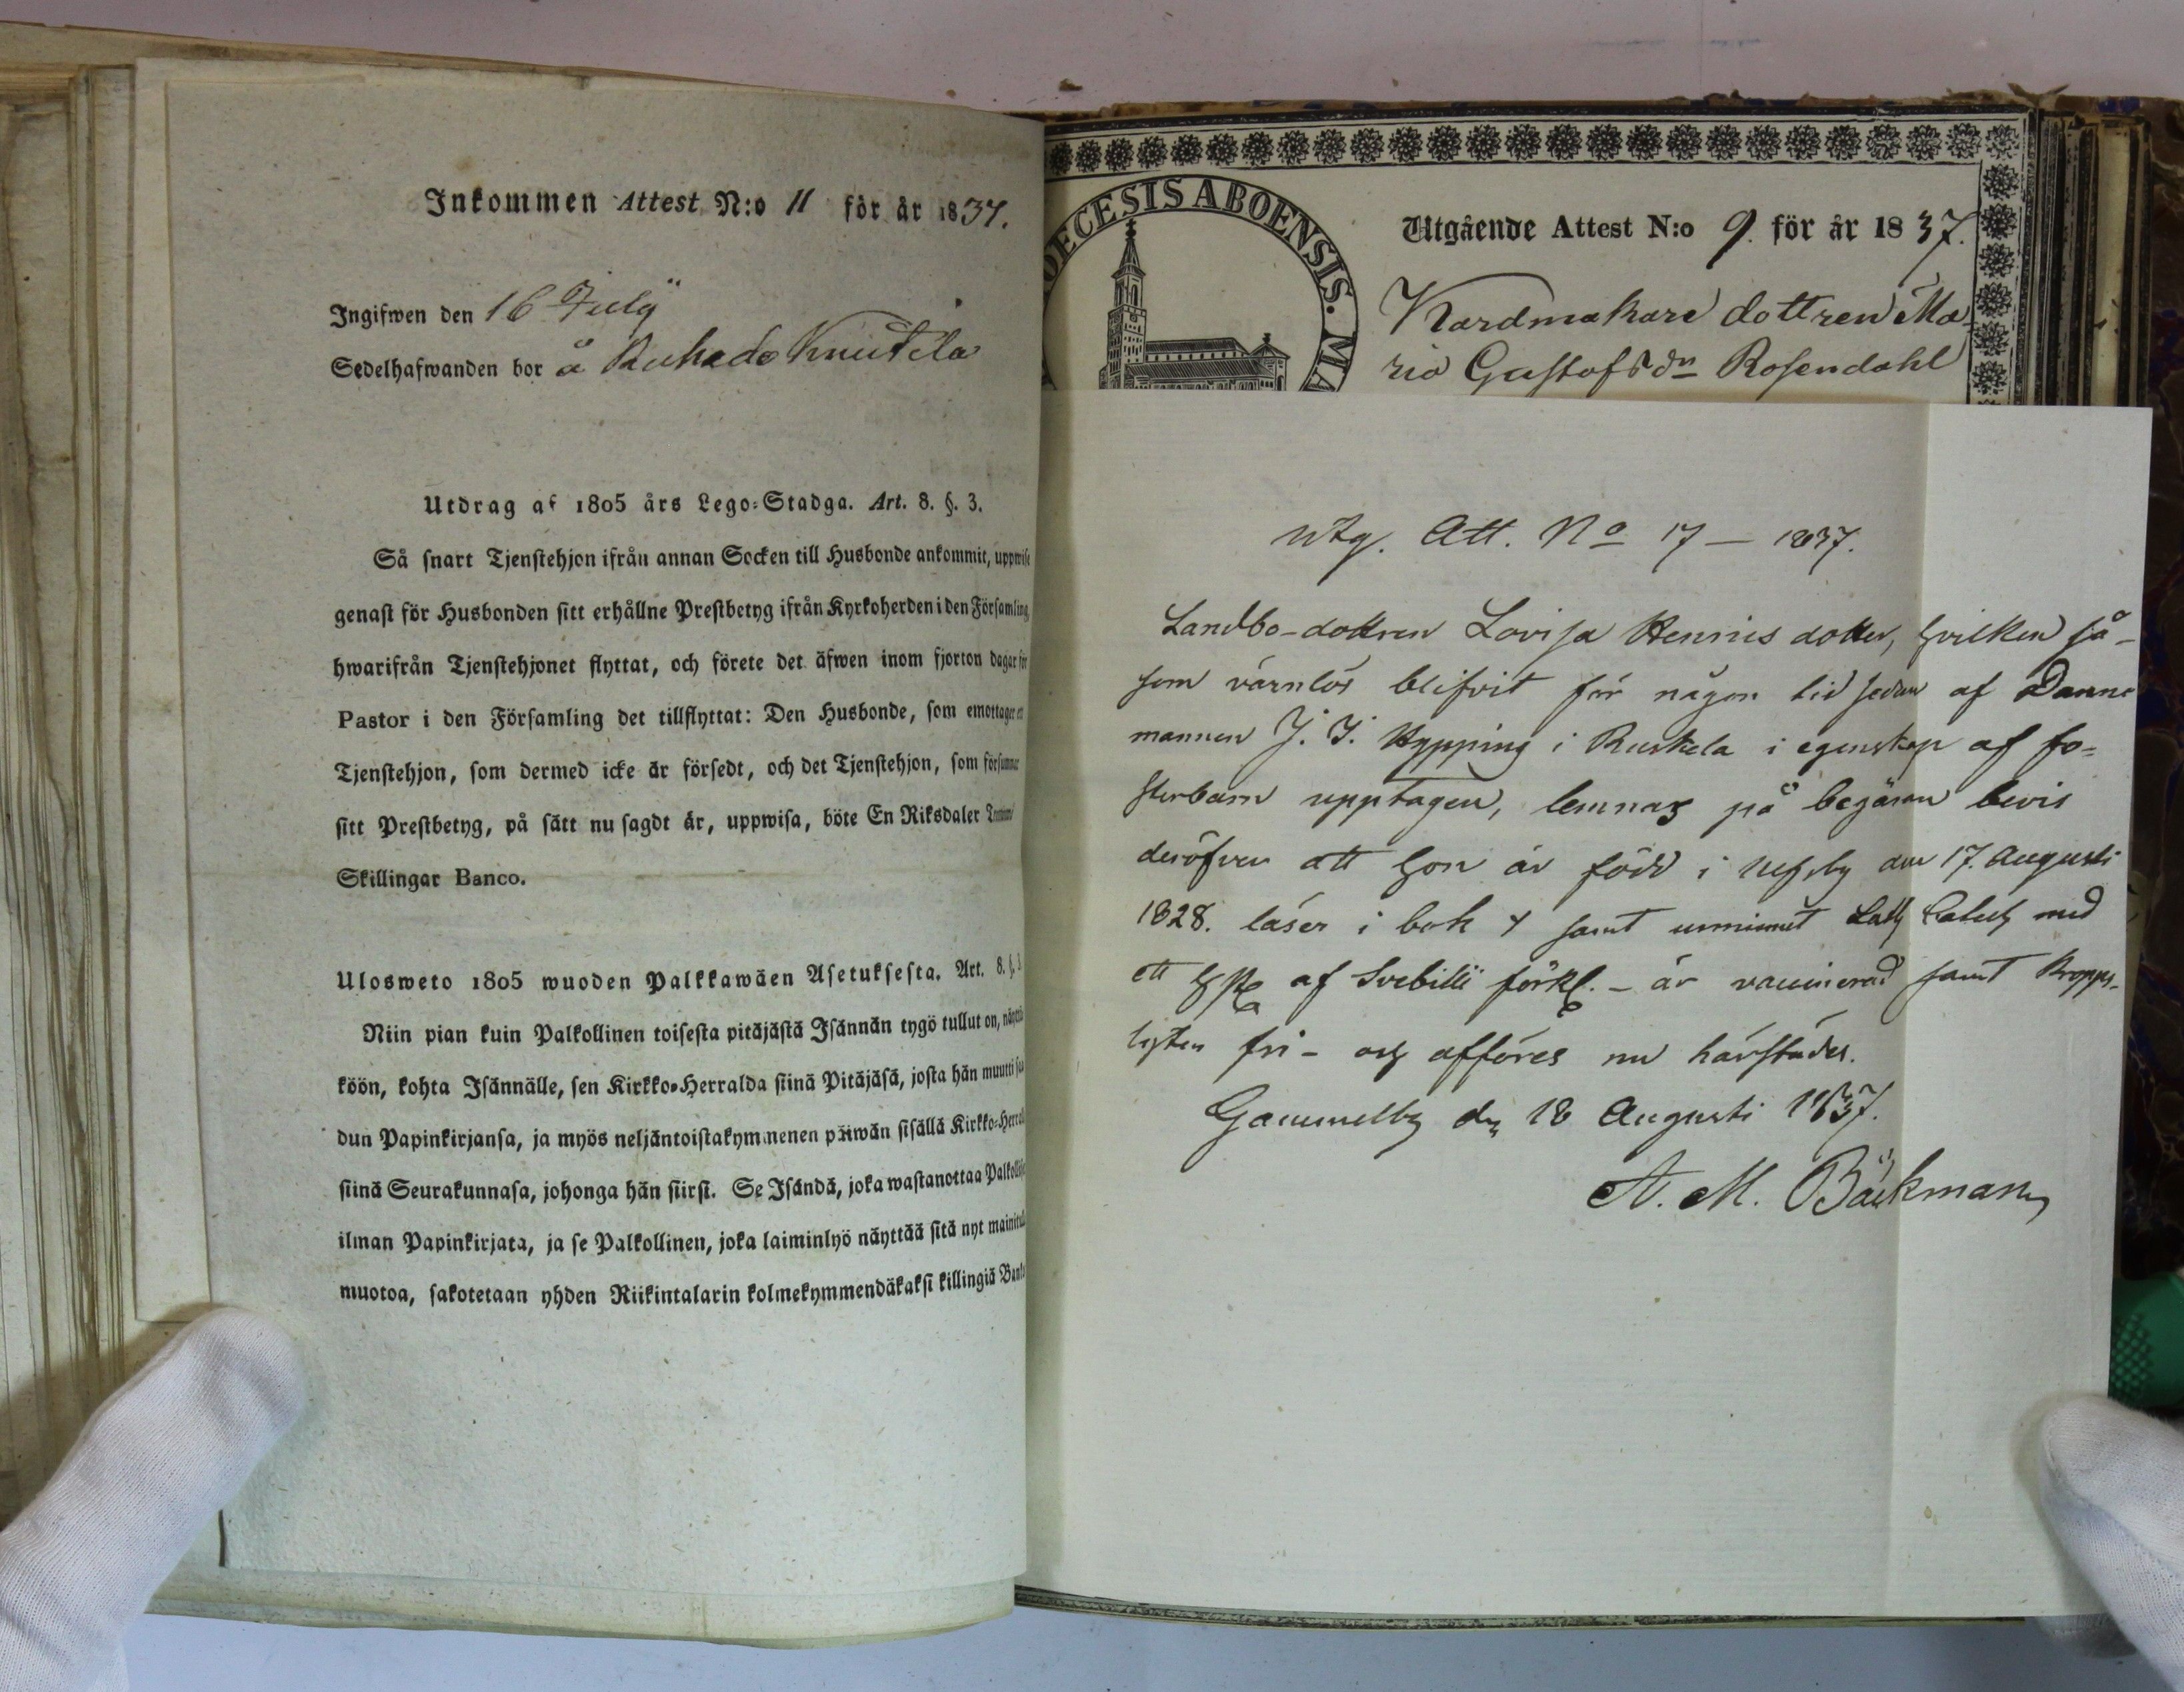 Inkommen Attest N:o 11 för år 1837.
Ingifwen den 16 July
Sedelhafwanden bor å Ruhade Knutila
Utdrag af 1805 års Lego-Stadga. Art. 8. §. 3.
Så snart Tjenstehjon ifrån annan Socken till Husbonde ankommit, uppwise
genast för Husbonden sitt erhållne Prestbetyg ifrån Kyrkoherden i den Församling
hwarifrån Tjenstehjonet flyttat, och förete det äfwen inom fjorton dagar för
Pastor i den Församling det tillflyttat: Den Husbonde, som emottager ett
Tjenstehjon, som dermed icke är försedt, och det Tjenstehjon, som försummar
sitt Prestbetyg, på sätt nu sagdt är, uppwisa, böte En Riksdaler
Skillingar Banco.
Ulosweto 1805 wuoden Palkkawäen Asetuksesta. Art. 8. §. 3
Niin pian kuin Palkollinen toisesta pitäjästä Isännän tygö tullut on, näyttä
köön, kohta Isännälle, sen Kirkko-Herralda siinä Pitäjäsä, josta hän muutti saa
dun Papinkirjansa, ja myös neljäntoistakymmenen päiwän sisällä Kirkko-Herral
siinä Seurakunnasa, johonga hän siirsi. Se Isändä, joka wastanottaa Palkollis
ilman Papinkirjata, ja se Palkollinen, joka laiminlyö näyttää sitä nyt mainitulla
muotoa, sakotetaan yhden Riikintalarin kolmekymmendäkaksi killingiä Banko
DECESIS ABOENSIS. MA
Utgående Attest N:o 9. för år 1837.
Kardmakare dottren Ma-
ria Gustafsdn Rosendahl
Utg. Att. No 17 – 1837.
Landbo-dottren Lovisa Henricsdotter, hvilken så-
som värnlös blifvit för någon tid sedan af Danne
mannen J. J. Nypping i Ruskela i egenskap af fo-
sterbarn upptagen, lemnas på begäran bevis
deröfver att hon är född i den 17. Augusti
1828. läser i bok samt utminnet Lath Catech med
ett af Svebilii förkl. – är vaccinerad samt kropps-
lyten fri – och afföres nu härstädes.
Gammelby den 18 Augusti 1837.
A. M. Bäckman